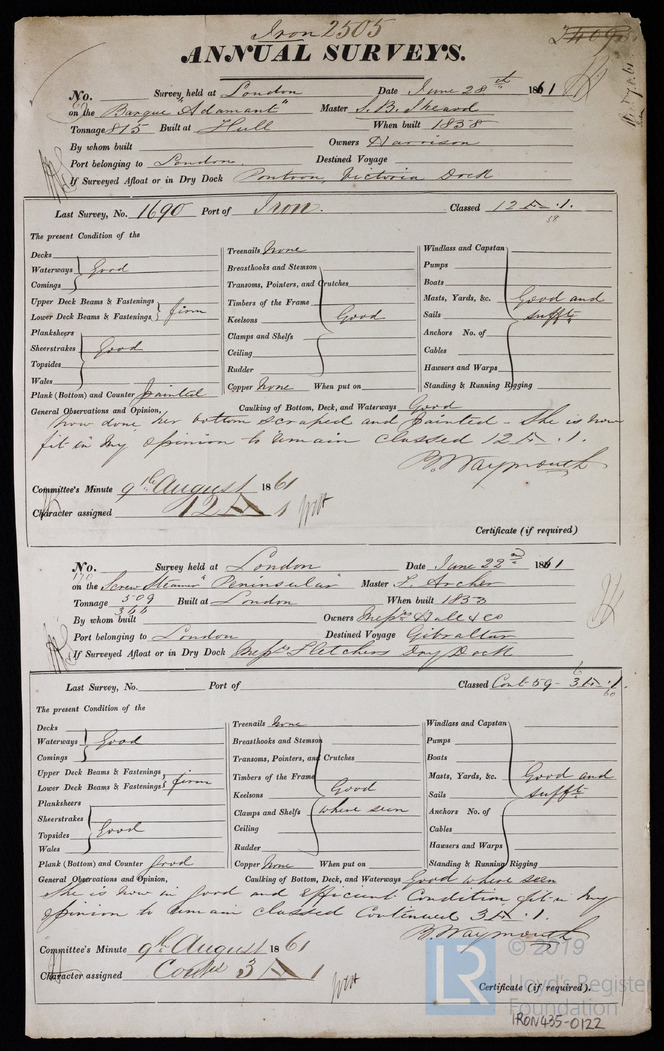 Iron 2505
ANNUAL SURVEYS.
No. Survey held at London Date June 28th 1861
on the Barque "Adamant" Master
Tonnage 815 Built at Hull When built 1858
By whom built Owners Harrison
Port belonging to London. Destined Voyage
If Surveyed Afloat or in Dry Dock Pontoon, Victoria Dock
Last Survey, No. 1690 Port of Iron. Classed 12 A .1.
58
The present Condition of the
Decks
Waterways Good
Comings
Upper Deck Beams & Fastenings
Lower Deck Beams & Fastenings firm
Planksheers
Sheerstrakes Good
Topsides
Wales
Plank (Bottom) and Counter painted
Treenails None
Breasthooks and Stemson
Transoms, Pointers, and Crutches
Timbers of the Frame
Keelsons Good
Clamps and Shelfs
Ceiling
Rudder
Copper None When put on
Windlass and Capstan
Pumps
Boats
Masts, Yards, &c. Good and
Sails sufft
Anchors No. of
Cables
Hawsers and Warps
Standing & Running Rigging
General Observations and Opinion, Caulking of Bottom, Deck, and Waterways Good
Now done her bottom scraped and painted - She is now
fit in my opinion to remain classed 12 A .1.
B. Waymouth
Committee's Minute 9th August 1861
Character assigned 12 A 1
Certificate (if required)
No. Survey held at London Date June 22nd 1861
on the Screw Steamer "Peninsular" Master Archer
Tonnage 509 Built at London When built
366
By whom built Owners Messrs Hall & Co
Port belonging to London Destined Voyage Gibraltar
If Surveyed Afloat or in Dry Dock Messrs Fletchers Dry Dock
Last Survey, No. Port of Classed Cont 59 - 3 A .1.
6
60
The present Condition of the
Decks
Waterways Good
Comings
Upper Deck Beams & Fastenings
Lower Deck Beams & Fastenings firm
Planksheers
Sheerstrakes
Topsides Good
Wales
Plank (Bottom) and Counter good
Treenails None
Breasthooks and Stemson
Transoms, Pointers, and Crutches
Timbers of the Frame
Keelsons Good
Clamps and Shelfs where seen
Ceiling
Rudder
Copper None When put on
Windlass and Capstan
Pumps
Boats
Masts, Yards, &c. Good and
Sails sufft
Anchors No. of
Cables
Hawsers and Warps
Standing & Running Rigging
General Observations and Opinion, Caulking of Bottom, Deck, and Waterways Good where seen
She is now in good and efficient Condition fit in my
opinion to remain classed Continued 3 A .1.
B. Waymouth
Committee's Minute 9th August 1861
Character assigned 3 A 1
Certificate (if required).
© 2019
LR
Lloyd's Register
Foundation
IRON435-0122